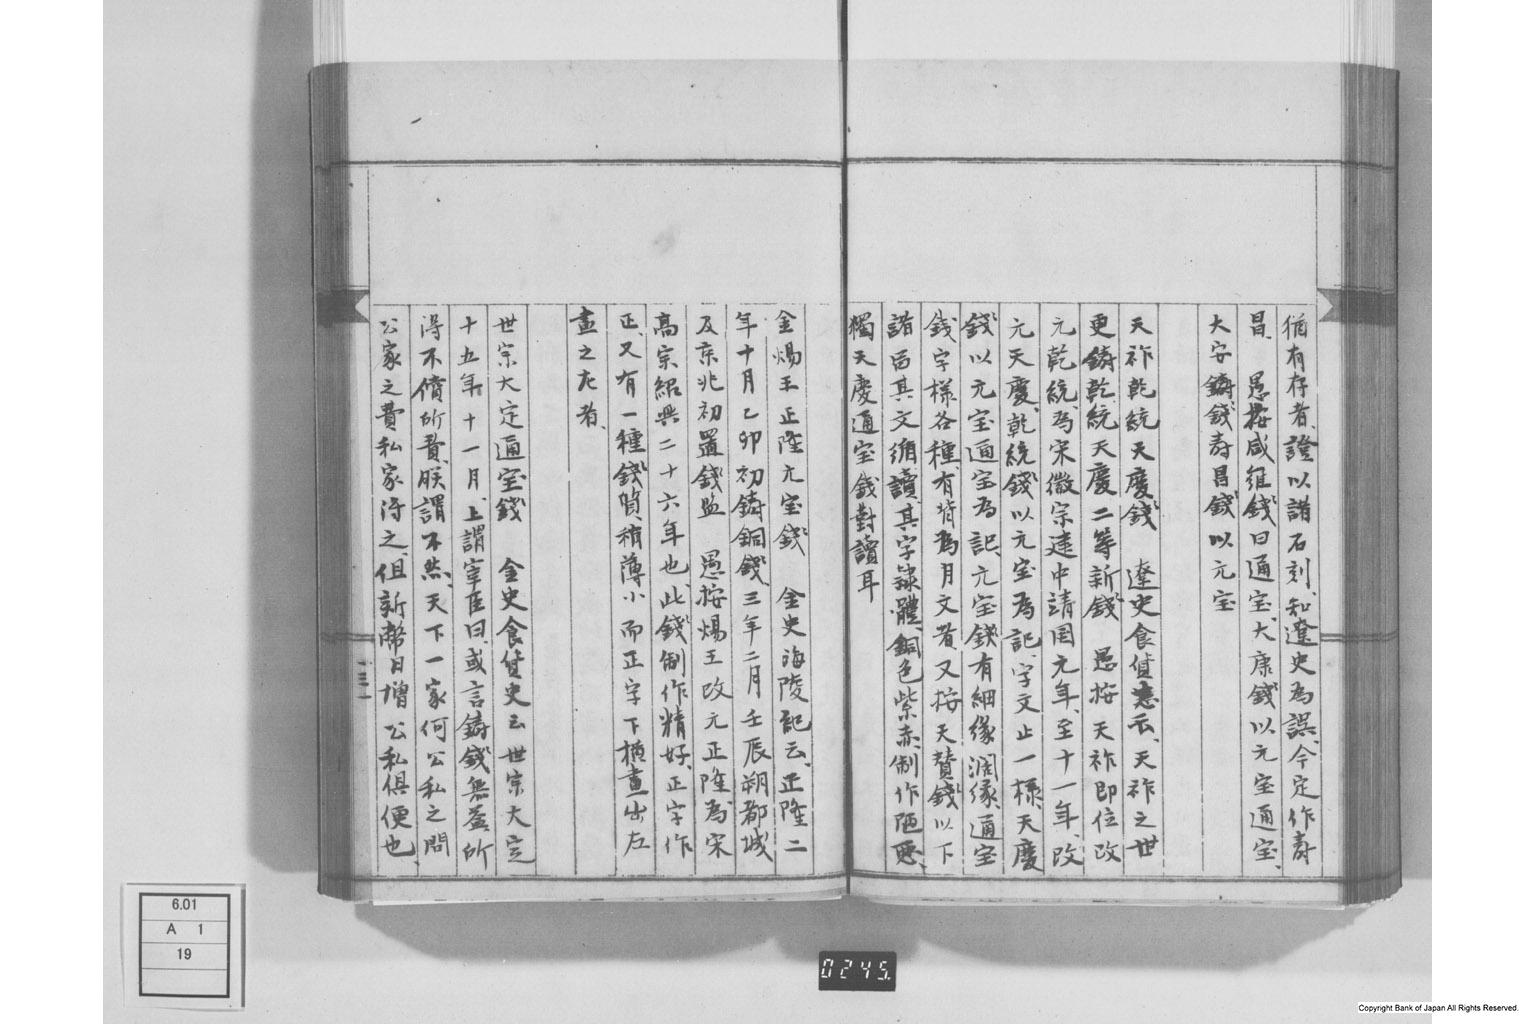 猶有存者、證以諸石刻、知遼史為誤、今定作壽
昌、　愚按咸雍錢曰通宝、大康錢以元宝通宝、
大安鑄錢壽昌錢以元宝
天祚乾統天慶錢　遼史食貨志云、天祚之世
更鑄乾統天慶二等新錢　愚按天祚即位改
元乾統、為宋徽宗建中靖国元年、至十一年、改
元天慶、乾統錢以元宝為記、字文止一様、天慶
錢以元宝通宝為記、元宝錢有細緣濶緣、通宝
錢字様各種、有背為月文者、又按天贊錢以下
諸品其文循讀、其字隷體、銅色紫赤、制作陋悪、
獨天慶通宝錢對讀耳
金煬王正隆元宝錢　金史海陵記云、正隆二
年十月乙卯初鑄銅錢、三年二月壬辰朔都城
及京兆初置錢監　愚按煬王改元正隆、為宋
高宗紹興二十六年也、此錢制作精好、正字作
正、又有一種錢質稍薄小而正字下橫畫出左
畫之左者、
世宗大定通宝錢　金史食貨史云世宗大定
十五年十一月、上謂宰臣曰、或言鑄錢無益所
得不償所費、朕謂不然、天下一家何公私之間
公家之費私家得之、但新幣日增公私俱便也、
6.01
A 1
19
0245.
Copyright Bank of Japan All Rights Reserved.